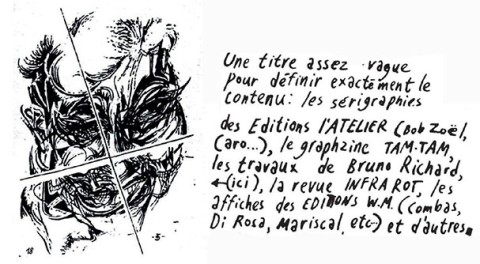 Une titre assez vague
pour définir exactement le
contenu: les sérigraphies
des Editions l'ATELIER (Bob Zoël,
Caro...), le graphzine TAM-TAM,
les travaux de Bruno Richard,
←(ici), la revue INFRAROT, les
affiches des EDITIONS W.M. (Combas,
Di Rosa, Mariscal, etc..) et d'autres.
18
5